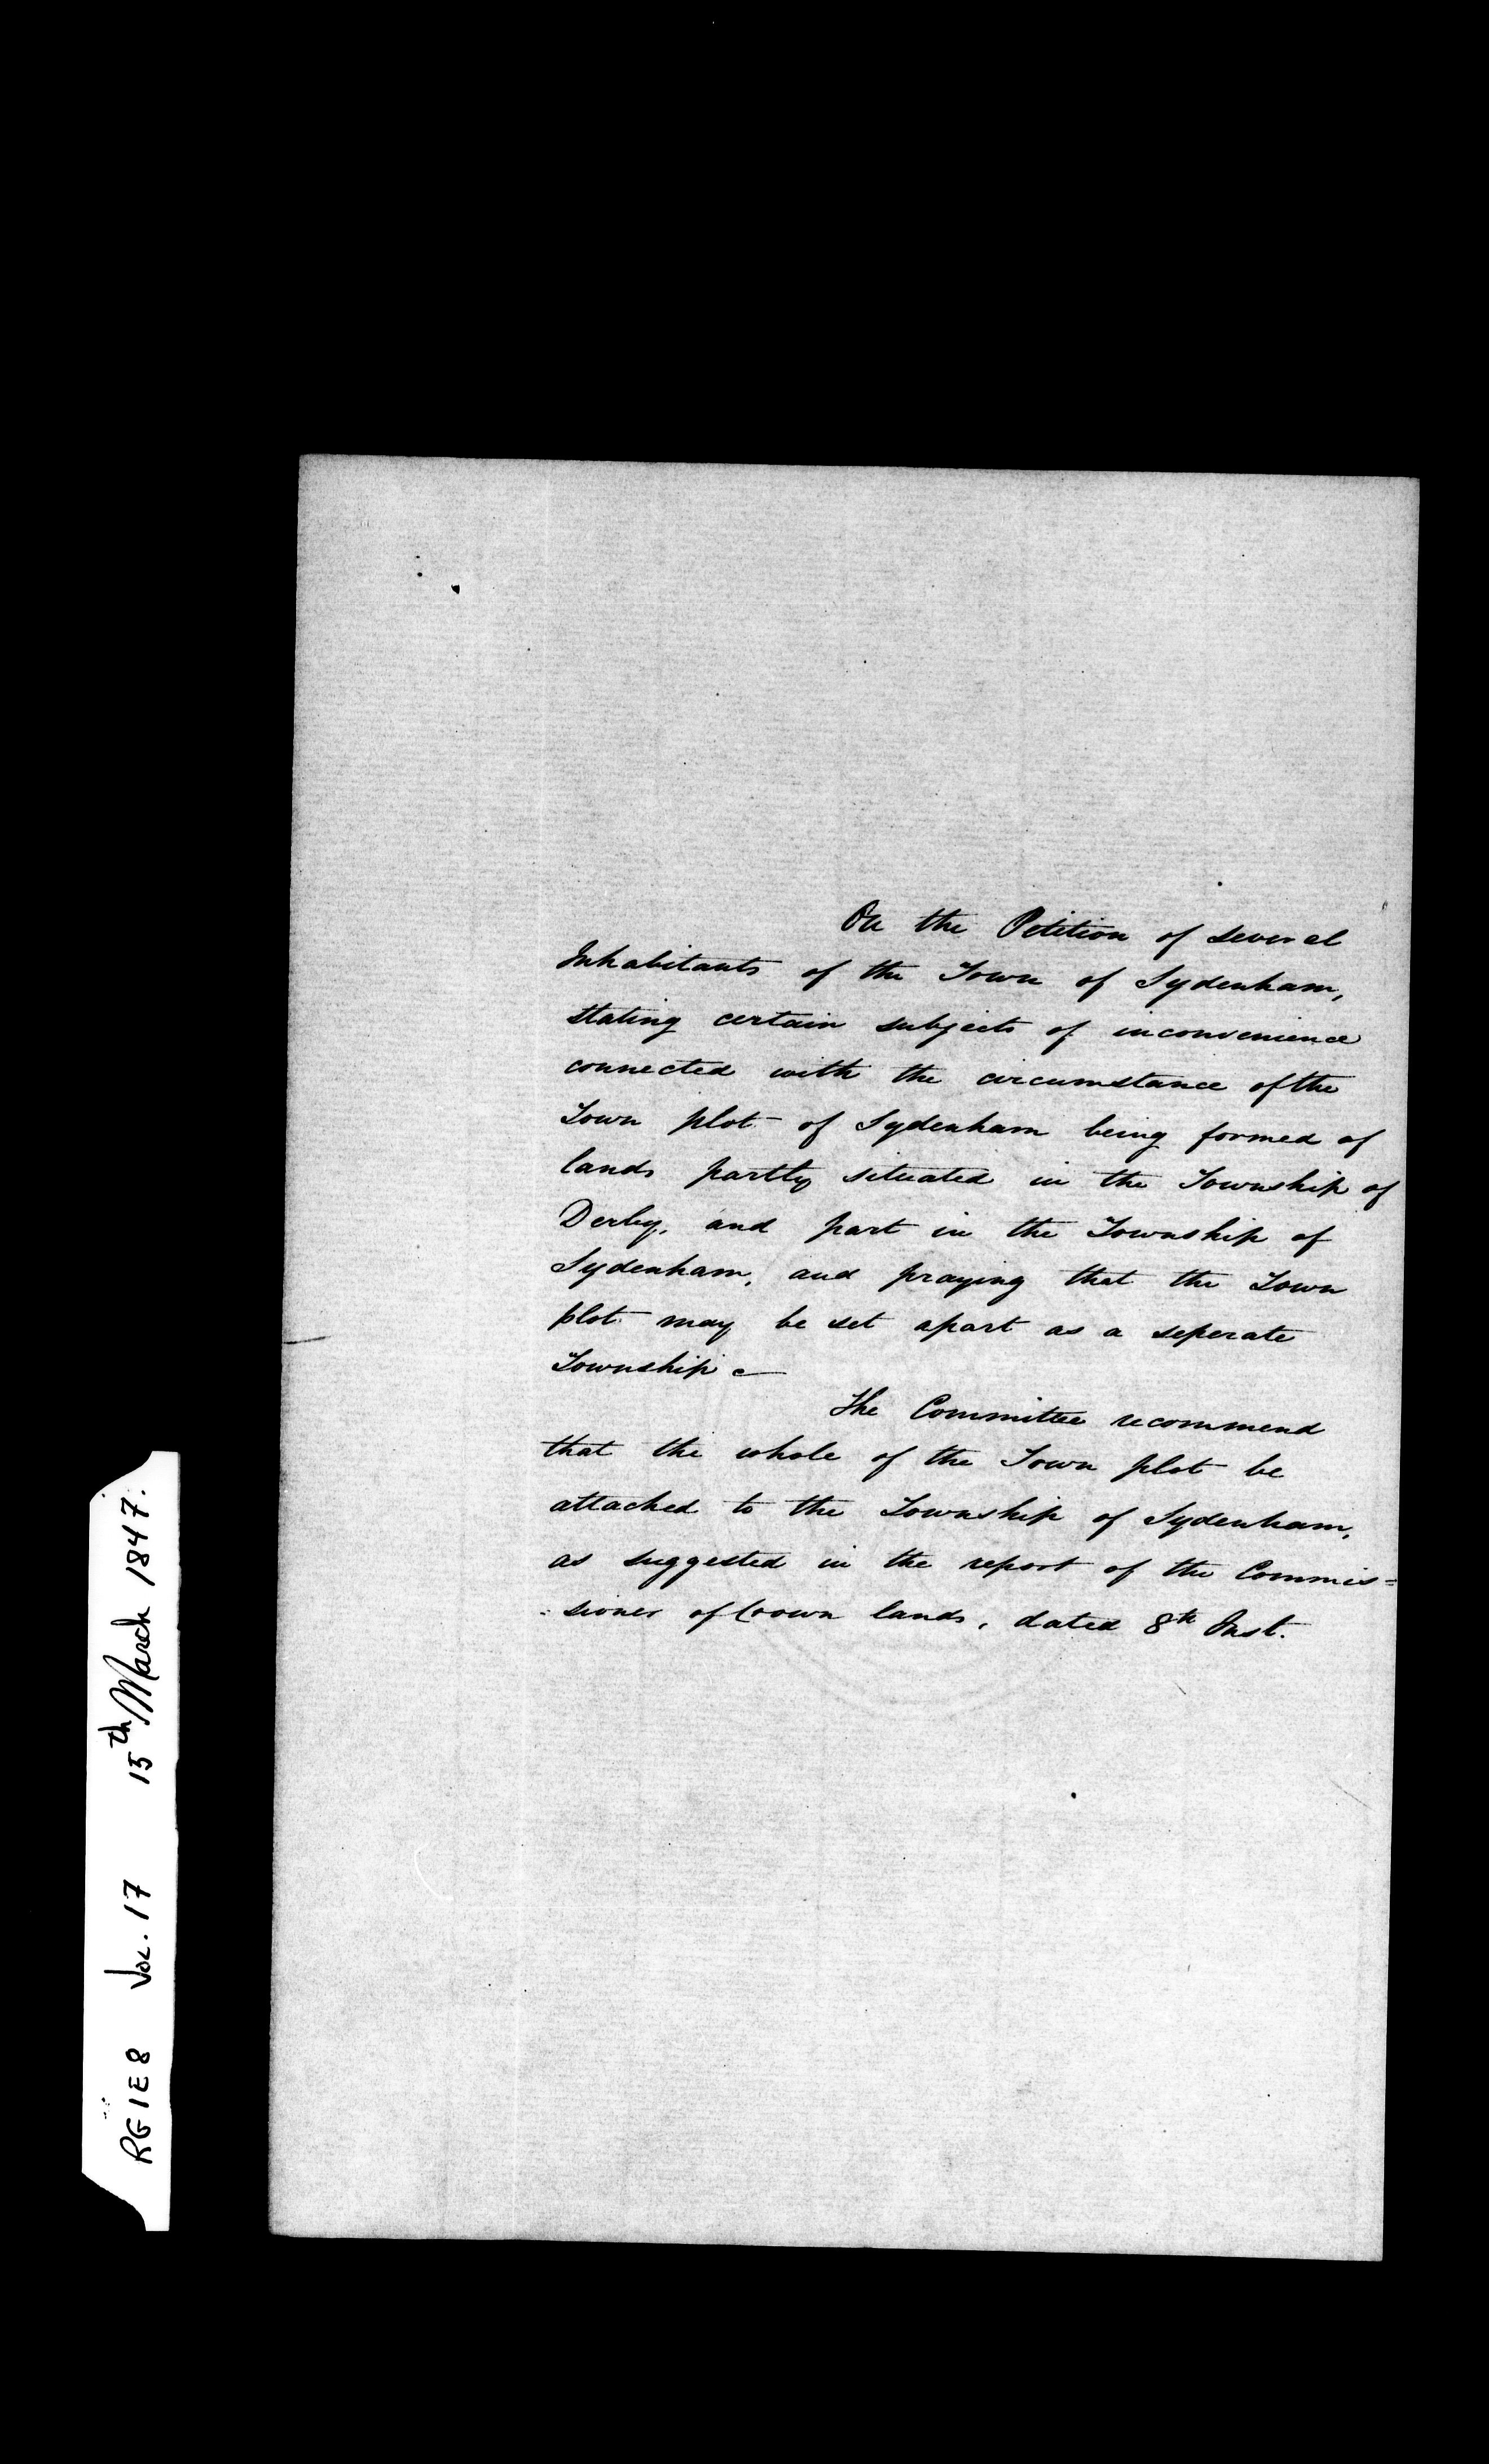 On the Petition of several
Inhabitants of the Town of Sydenham,
stating certain subjects of inconvenience
connected with the circumstance of the
Town plot of Sydenham being formed of
lands partly situated in the Township of
Derby, and part in the Township of
Sydenham, and praying that the Town
plot may be set apart as a seperate
Township —
The Committee recommend
that the whole of the Town plot be
attached to the Township of Sydenham,
as suggested in the report of the Commis=
=sioner of Crown lands, dated 8th Inst.
RG 1 E 8 Vol. 17 15th March 1847.